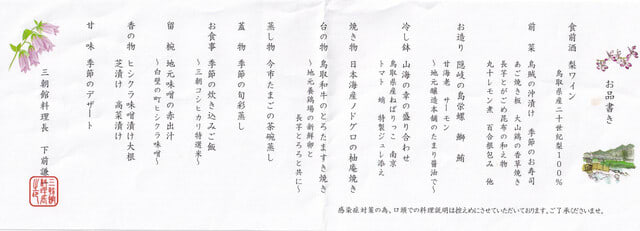 お品書き
食前酒 梨ワイン
鳥取県産二十世紀梨100%
前菜 烏賊の沖漬け 季節のお寿司
あご焼き板 大山鶏の香草焼き
長芋とがごめ昆布の和え物
丸十レモン煮 百合根包み 他
お造り 隠岐の島栄螺 鰤 鮪
甘海老 サーモン
〜地元醸造本舗のたまり醤油で〜
冷し鉢 山海の幸の盛り合わせ
鳥取県産ねばりっこ 南京
トマト 蛸 特製ジュレ添え
焼き物 日本海産ノドグロの柚庵焼き
台の物 鳥取和牛のとろたますき焼き
〜地元養鶏場の新鮮卵と
長芋とろろと共に〜
蒸し物 今市たまごの茶碗蒸し
蓋物 季節の旬彩蒸し
お食事 季節の炊き込みご飯
〜三朝コシヒカリ特選米〜
留椀 地元味噌の赤出汁
〜白壁の町ヒシクラ味噌〜
香の物 ヒシクラ味噌漬け大根
芝漬け 高菜漬け
甘味 季節のデザート
三朝館料理長 下前謙
感染症対策の為、口頭での料理説明は控えめにさせていただいております。ご了承くださいませ。